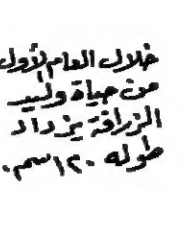 خلال العام الأول
من حياة وليد
الزرافة يزداد
طوله ١٢٠سم.